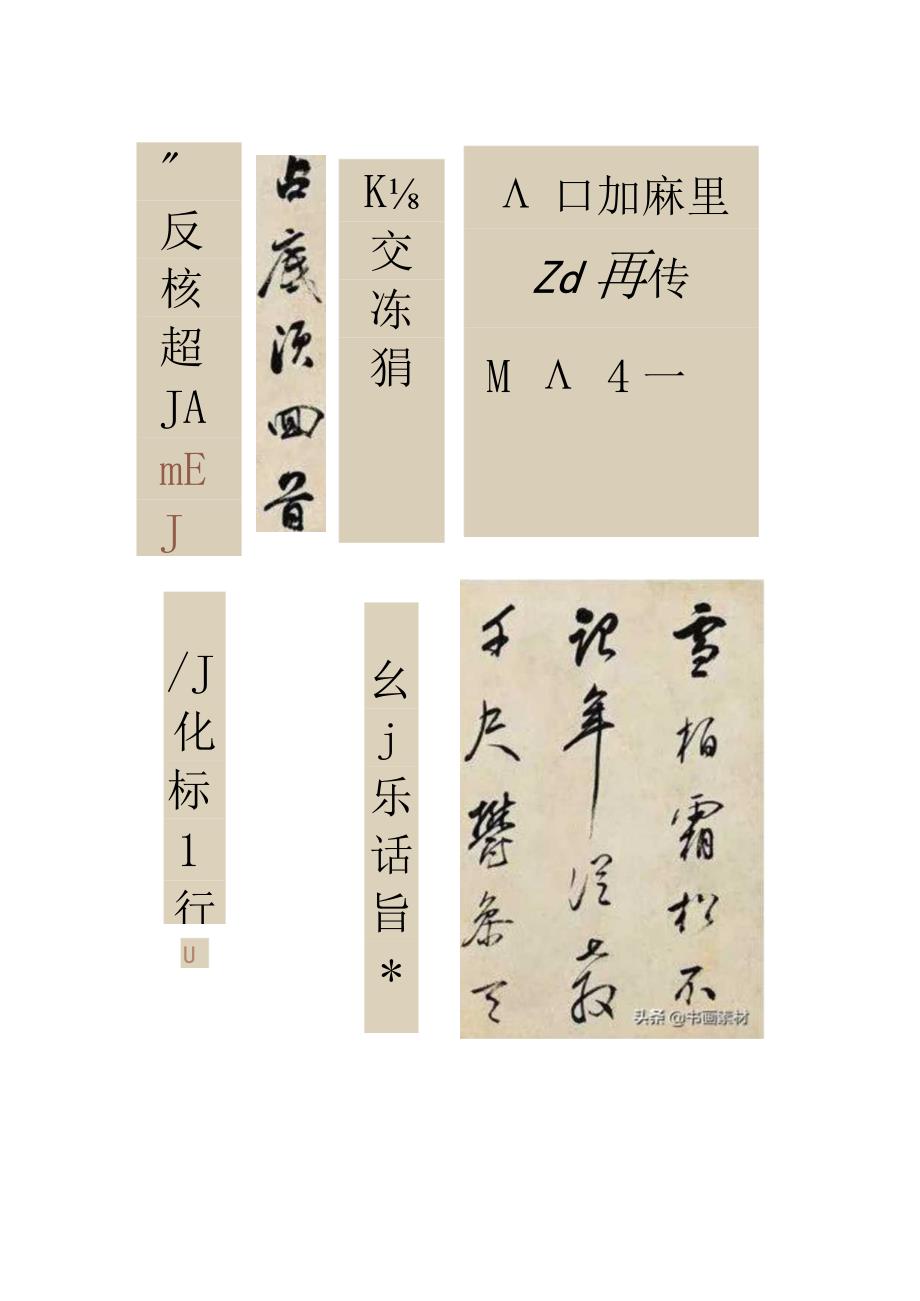 〃
反
核
超
JA
mE
J
占底须回首
K⅛
交
冻
狷
Λ 口加麻里
Zd 再传
M Λ 4 一
/J
化
标
1
行
U
幺
j
乐
话
旨
*
雪柏霜松不
记年从教
千尺郁参天
头条 @书画素材